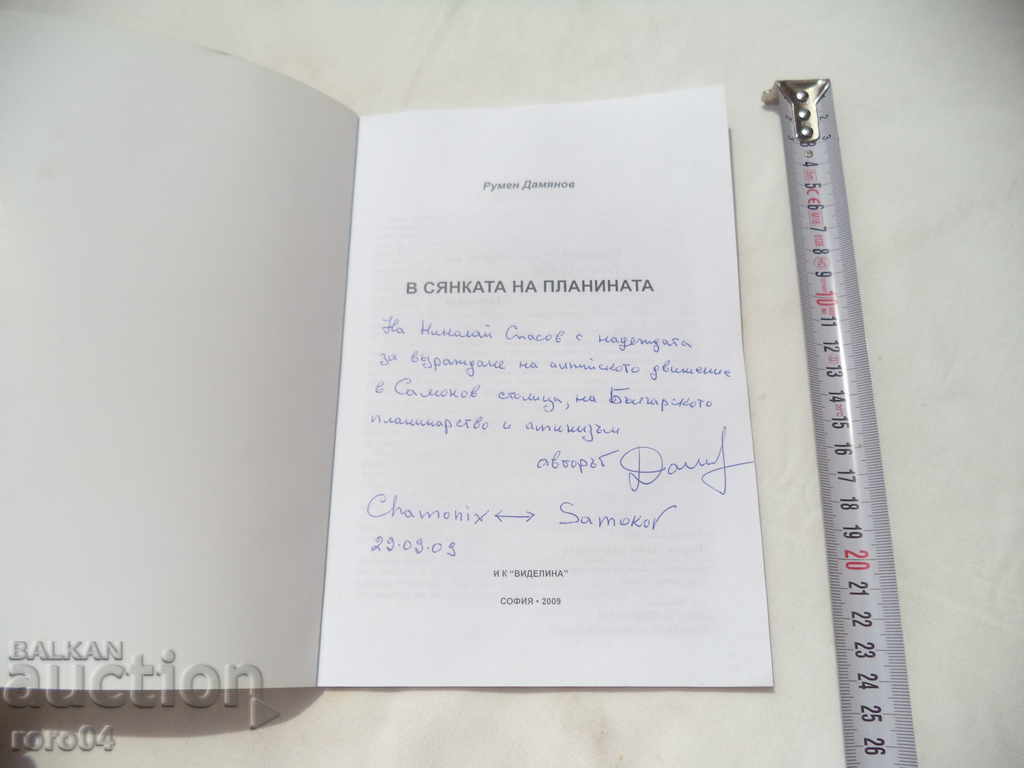 Румен Дамянов
В СЯНКАТА НА ПЛАНИНАТА
На Николай Спасов с надеждата
за възраждане на алпийското движение
в Самоков столица, на Българското
планинарство и алпинизъм
авторът
Chamonix ↔ Samokov
29.09.09
И К "ВИДЕЛИНА"
СОФИЯ • 2009
BALKAN
auction
roro04
2
3
3
4
5
6
7
8
9
10
11
12
13
14
15
16
17
18
19
20
21
22
23
24
25
26